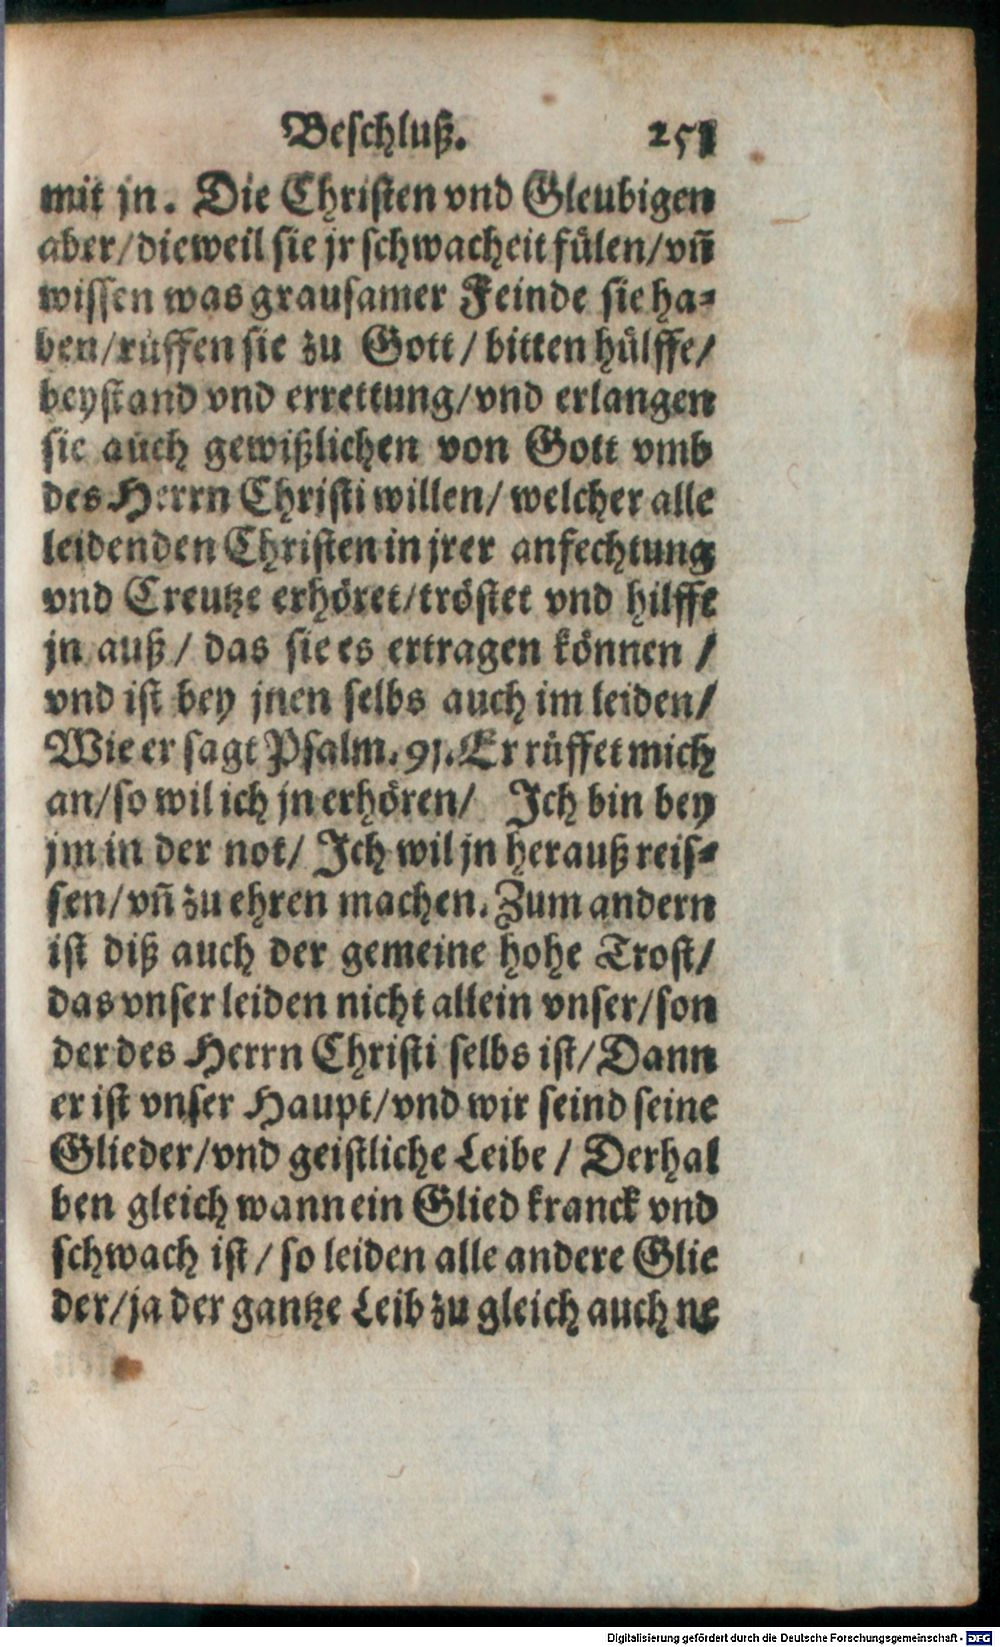 Beschluß. 251
mit jn. Die Christen vnd Gleubigen
aber/dieweil sie jr schwacheit fülen/vñ
wissen was grausamer Feinde sie ha-
ben/rüffen sie zu Gott/bitten hülffe/
beystand vnd errettung/vnd erlangen
sie auch gewißlichen von Gott vmb
des Herrn Christi willen/welcher alle
leidenden Christen in jrer anfechtung
vnd Creutze erhöret/tröstet vnd hilffe
jn auß/das sie es ertragen können/
vnd ist bey jnen selbs auch im leiden/
Wie er sagt Psalm. 91. Er rüffet mich
an/so wil ich jn erhören/ Ich bin bey
jm in der not/Ich wil jn herauß reis-
sen/vñ zu ehren machen. Zum andern
ist diß auch der gemeine hohe Trost/
das vnser leiden nicht allein vnser/son
der des Herrn Christi selbs ist/Dann
er ist vnser Haupt/vnd wir seind seine
Glieder/vnd geistliche Leibe/Derhal
ben gleich wann ein Glied kranck vnd
schwach ist/so leiden alle andere Glie
der/ja der gantze Leib zu gleich auch ne
Digitalisierung gefördert durch die Deutsche Forschungsgemeinschaft - DFG